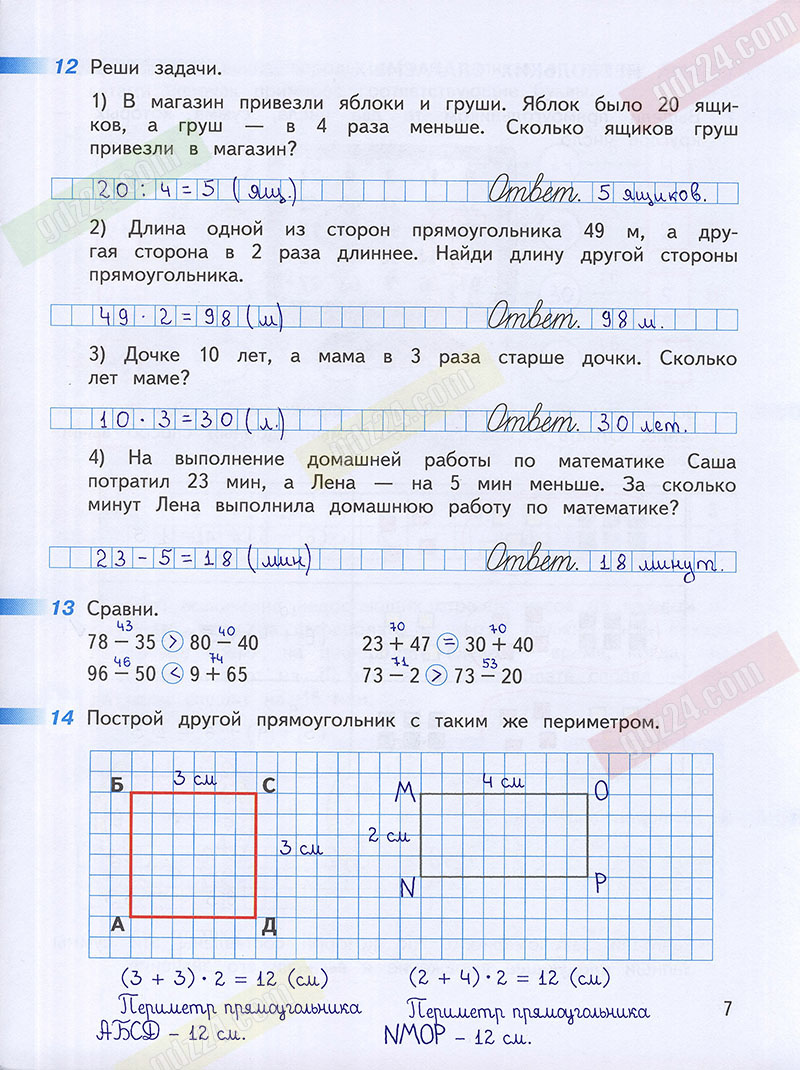 gdz24.com
12 Реши задачи.
1) В магазин привезли яблоки и груши. Яблок было 20 ящи-
ков, а груш — в 4 раза меньше. Сколько ящиков груш
привезли в магазин?
20 : 4 = 5 (ящ.) Ответ. 5 ящиков.
gdz24.com
2) Длина одной из сторон прямоугольника 49 м, а дру-
гая сторона в 2 раза длиннее. Найди длину другой стороны
прямоугольника.
49 · 2 = 98 (м) Ответ. 98 м.
3) Дочке 10 лет, а мама в 3 раза старше дочки. Сколько
лет маме?
10 · 3 = 30 (л.) Ответ. 30 лет.
gdz24.com
4) На выполнение домашней работы по математике Саша
потратил 23 мин, а Лена — на 5 мин меньше. За сколько
минут Лена выполнила домашнюю работу по математике?
23 - 5 = 18 (мин) Ответ. 18 минут.
13 Сравни.
43 40 70 70
78 − 35 > 80 − 40 23 + 47 = 30 + 40
46 74 71 53
96 − 50 < 9 + 65 73 − 2 > 73 − 20
14 Построй другой прямоугольник с таким же периметром.
gdz24.com
Б 3 см С М 4 см О
3 см 2 см
N Р
А Д
(3 + 3) · 2 = 12 (см) (2 + 4) · 2 = 12 (см)
Периметр прямоугольника Периметр прямоугольника
АБСD – 12 см. NMOP – 12 см.
7
gdz24.com